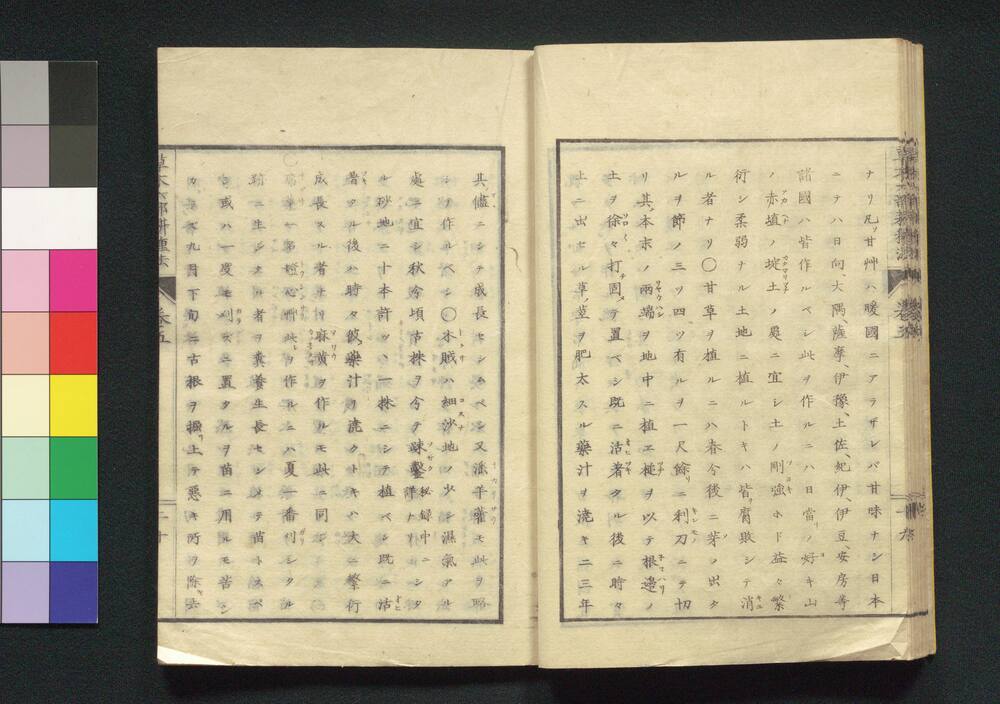 ナリ凡ソ甘艸ハ暖國ニアラザレバ甘味ナシ日本
ニナハ日向、大隅、薩摩、伊豫、土佐、紀伊、伊豆、安房等
諸國ハ皆作ルベシ此ヲ作ルニハ日當リノ好キ山
ノ赤埴ノ埞土ノ處ニ宜シ土ノ剛強ホド益々繁
衍シ柔弱ナル土地ニ植ルトキハ皆腐敗シテ消
ル者ナリ〇甘草ヲ植ルニハ春分後ニ芽ノ出タ
ルヲ節ノ三ツ四ツ有ルヲ一尺餘リニ利刀ニテ切
リ其本末ノ両端ヲ地中ニ植エ槌ヲ以テ根邊ノ
土ヲ徐々打チ固メテ置ベシ既ニ活着タル後ニ時々
土ニ出セル草ノ莖ヲ肥太スル藥汁ヲ澆キ二三年
其儘ニシテ成長セシムベシ又漲羊藿モ此ヲ略
シ作ルベシ〇木賊ハ細沙地ノ少シ濕氣アル
處ニ宜シ秋分頃古株ヲ分テ疎鑿秘録中ニ詳ナリニシタ
ル砂地ニ十本許ツヽ一株ニシテ植ベシ既ニ活
着タル後ハ時々彼藥汁ヲ澆クトキハ大ニ繁衍
成長スル者ナリ麻黄ヲ作ルモ此ニ同ジ
燈心艸此ヲ作ルニハ夏一番刈シタル
跡ニ生シタル者ヲ糞養生長セシメテ苗トスベ
シ或ハ一度モ刈ズニ置タルヲ苗ニ用ルモ苦シ
カラズ九月下旬ニ古根ヲ掘上テ悪キ所ヲ除去
草木六部耕種法
巻五
二十